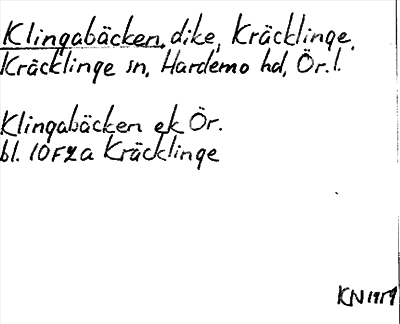 Klingabäcken, dike, Kräcklinge,
Kräcklinge sn, Hardemo hd, Ör. l.
Klingabäcken ek Ör.
bl. 10F2a Kräcklinge
KN 1959